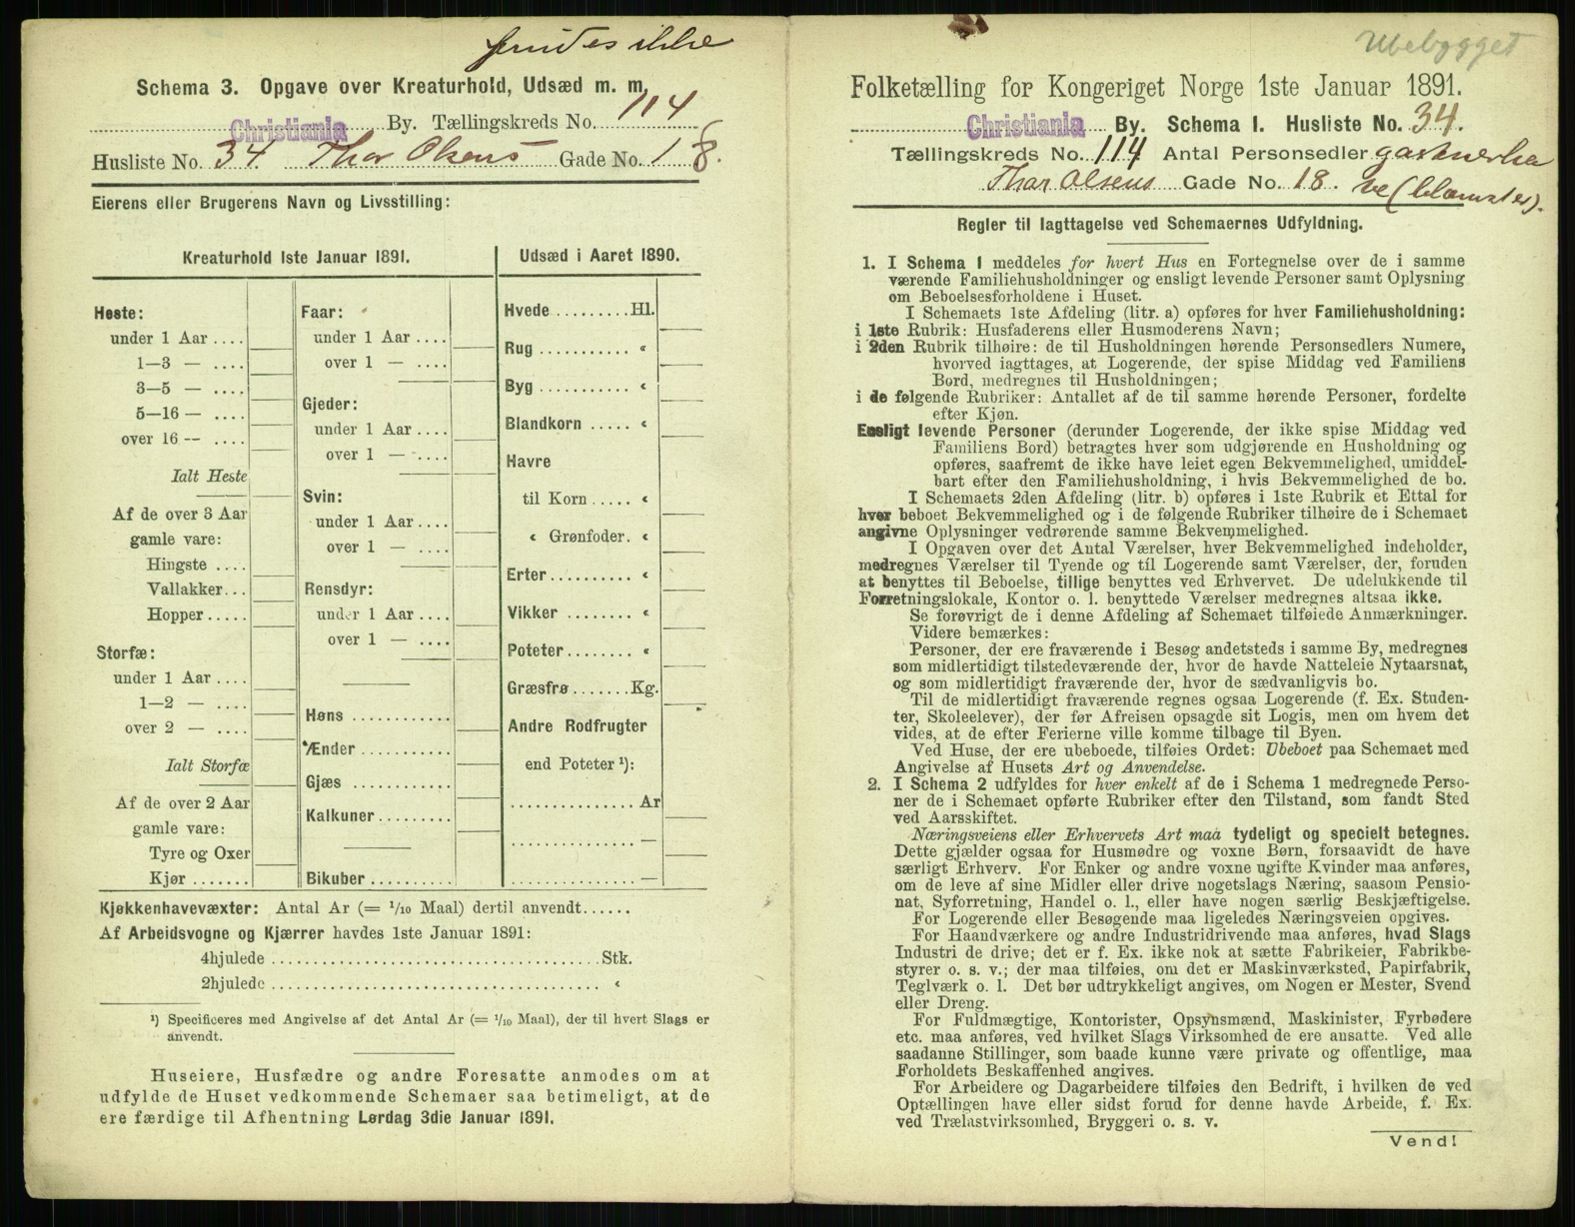 findes ikke
Schema 3. Opgave over Kreaturhold, Udsæd m. m.
Christiania By. Tællingskreds No. 114
Husliste No. 34 Thor Olsens Gade No. 18.
Eierens eller Brugerens Navn og Livsstilling:
Kreaturhold 1ste Januar 1891.
Heste:
under 1 Aar ....
1—3 — ....
3—5 — ....
5—16 — ....
over 16 — ....
Ialt Heste
Af de over 3 Aar
gamle vare:
Hingste ....
Vallakker...
Hopper .....
Storfæ:
under 1 Aar ....
1—2 — ....
over 2 — ....
Ialt Storfæ
Af de over 2 Aar
gamle vare:
Tyre og Oxer
Kjør .......
Faar:
under 1 Aar ....
over 1 — ....
Gjeder:
under 1 Aar ....
over 1 — ....
Svin:
under 1 Aar ....
over 1 — ....
Rensdyr:
under 1 Aar ....
over 1 — ....
Høns ............
Ænder ...........
Gjæs ............
Kalkuner.........
Bikuber ..........
Udsæd i Aaret 1890.
Hvede .........Hl.
Rug ........... «
Byg ........... «
Blandkorn ..... «
Havre
til Korn ..... «
« Grønfoder. «
Erter.......... «
Vikker ........ «
Poteter........ «
Græsfrø .......Kg.
Andre Rodfrugter
end Poteter ¹):
............... Ar
............... —
............... —
Kjøkkenhavevæxter: Antal Ar (= 1/10 Maal) dertil anvendt......
Af Arbeidsvogne og Kjærrer havdes 1ste Januar 1891:
4hjulede ....................................Stk.
2hjulede .................................... «
¹) Specificeres med Angivelse af det Antal Ar (= 1/10 Maal), der til hvert Slags er
anvendt.
Huseiere, Husfædre og andre Foresatte anmodes om at
udfylde de Huset vedkommende Schemaer saa betimeligt, at de
ere færdige til Afhentning Lørdag 3die Januar 1891.
Ubebygget
Folketælling for Kongeriget Norge 1ste Januar 1891.
Christiania By. Schema 1. Husliste No. 34.
Tællingskreds No. 114 Antal Personsedler gartnerha
Thor Olsens Gade No. 18. ve (blomster).
Regler til Iagttagelse ved Schemaernes Udfyldning.
1. I Schema 1 meddeles for hvert Hus en Fortegnelse over de i samme
værende Familiehusholdninger og ensligt levende Personer samt Oplysning
om Beboelsesforholdene i Huset.
I Schemaets 1ste Afdeling (litr. a) opføres for hver Familiehusholdning:
i 1ste Rubrik: Husfaderens eller Husmoderens Navn;
i 2den Rubrik tilhøire: de til Husholdningen hørende Personsedlers Numere,
hvorved iagttages, at Logerende, der spise Middag ved Familiens
Bord, medregnes til Husholdningen;
i de følgende Rubriker: Antallet af de til samme hørende Personer, fordelte
efter Kjøn.
Ensligt levende Personer (derunder Logerende, der ikke spise Middag ved
Familiens Bord) betragtes hver som udgjørende en Husholdning og
opføres, saafremt de ikke have leiet egen Bekvemmelighed, umiddel-
bart efter den Familiehusholdning, i hvis Bekvemmelighed de bo.
I Schemaets 2den Afdeling (litr. b) opføres i 1ste Rubrik et Ettal for
hver beboet Bekvemmelighed og i de følgende Rubriker tilhøire de i Schemaet
angivne Oplysninger vedrørende samme Bekvemmelighed.
I Opgaven over det Antal Værelser, hver Bekvemmelighed indeholder,
medregnes Værelser til Tyende og til Logerende samt Værelser, der, foruden
at benyttes til Beboelse, tillige benyttes ved Erhvervet. De udelukkende til
Forretningslokale, Kontor o. l. benyttede Værelser medregnes altsaa ikke.
Se forøvrigt de i denne Afdeling af Schemaet tilføiede Anmærkninger.
Videre bemærkes:
Personer, der ere fraværende i Besøg andetsteds i samme By, medregnes
som midlertidigt tilstedeværende der, hvor de havde Natteleie Nytaarsnat,
og som midlertidigt fraværende der, hvor de sædvanligvis bo.
Til de midlertidigt fraværende regnes ogsaa Logerende (f. Ex. Studen-
ter, Skoleelever), der før Afreisen opsagde sit Logis, men om hvem det
vides, at de efter Ferierne ville komme tilbage til Byen.
Ved Huse, der ere ubeboede, tilføies Ordet: Ubeboet paa Schemaet med
Angivelse af Husets Art og Anvendelse.
2. I Schema 2 udfyldes for hver enkelt af de i Schema 1 medregnede Perso-
ner de i Schemaet opførte Rubriker efter den Tilstand, som fandt Sted
ved Aarsskiftet.
Næringsveiens eller Erhvervets Art maa tydeligt og specielt betegnes.
Dette gjælder ogsaa for Husmødre og voxne Børn, forsaavidt de have
særligt Erhverv. For Enker og andre voxne ugifte Kvinder maa anføres,
om de leve af sine Midler eller drive nogetslags Næring, saasom Pensio-
nat, Syforretning, Handel o. l., eller have nogen særlig Beskjæftigelse.
For Logerende eller Besøgende maa ligeledes Næringsveien opgives.
For Haandværkere og andre Industridrivende maa anføres, hvad Slags
Industri de drive; det er f. Ex. ikke nok at sætte Fabrikeier, Fabrikbe-
styrer o. s. v.; der maa tilføies, om det er Maskinværksted, Papirfabrik,
Teglværk o. l. Det bør udtrykkeligt angives, om Nogen er Mester, Svend
eller Dreng.
For Fuldmægtige, Kontorister, Opsynsmænd, Maskinister, Fyrbødere
etc. maa anføres, ved hvilket Slags Virksomhed de ere ansatte. Ved alle
saadanne Stillinger, som baade kunne være private og offentlige, maa
Forholdets Beskaffenhed angives.
For Arbeidere og Dagarbeidere tilføies den Bedrift, i hvilken de ved
Optællingen have eller sidst forud for denne havde Arbeide, f. Ex.
ved Trælastvirksomhed, Bryggeri o. s. v.
Vend!